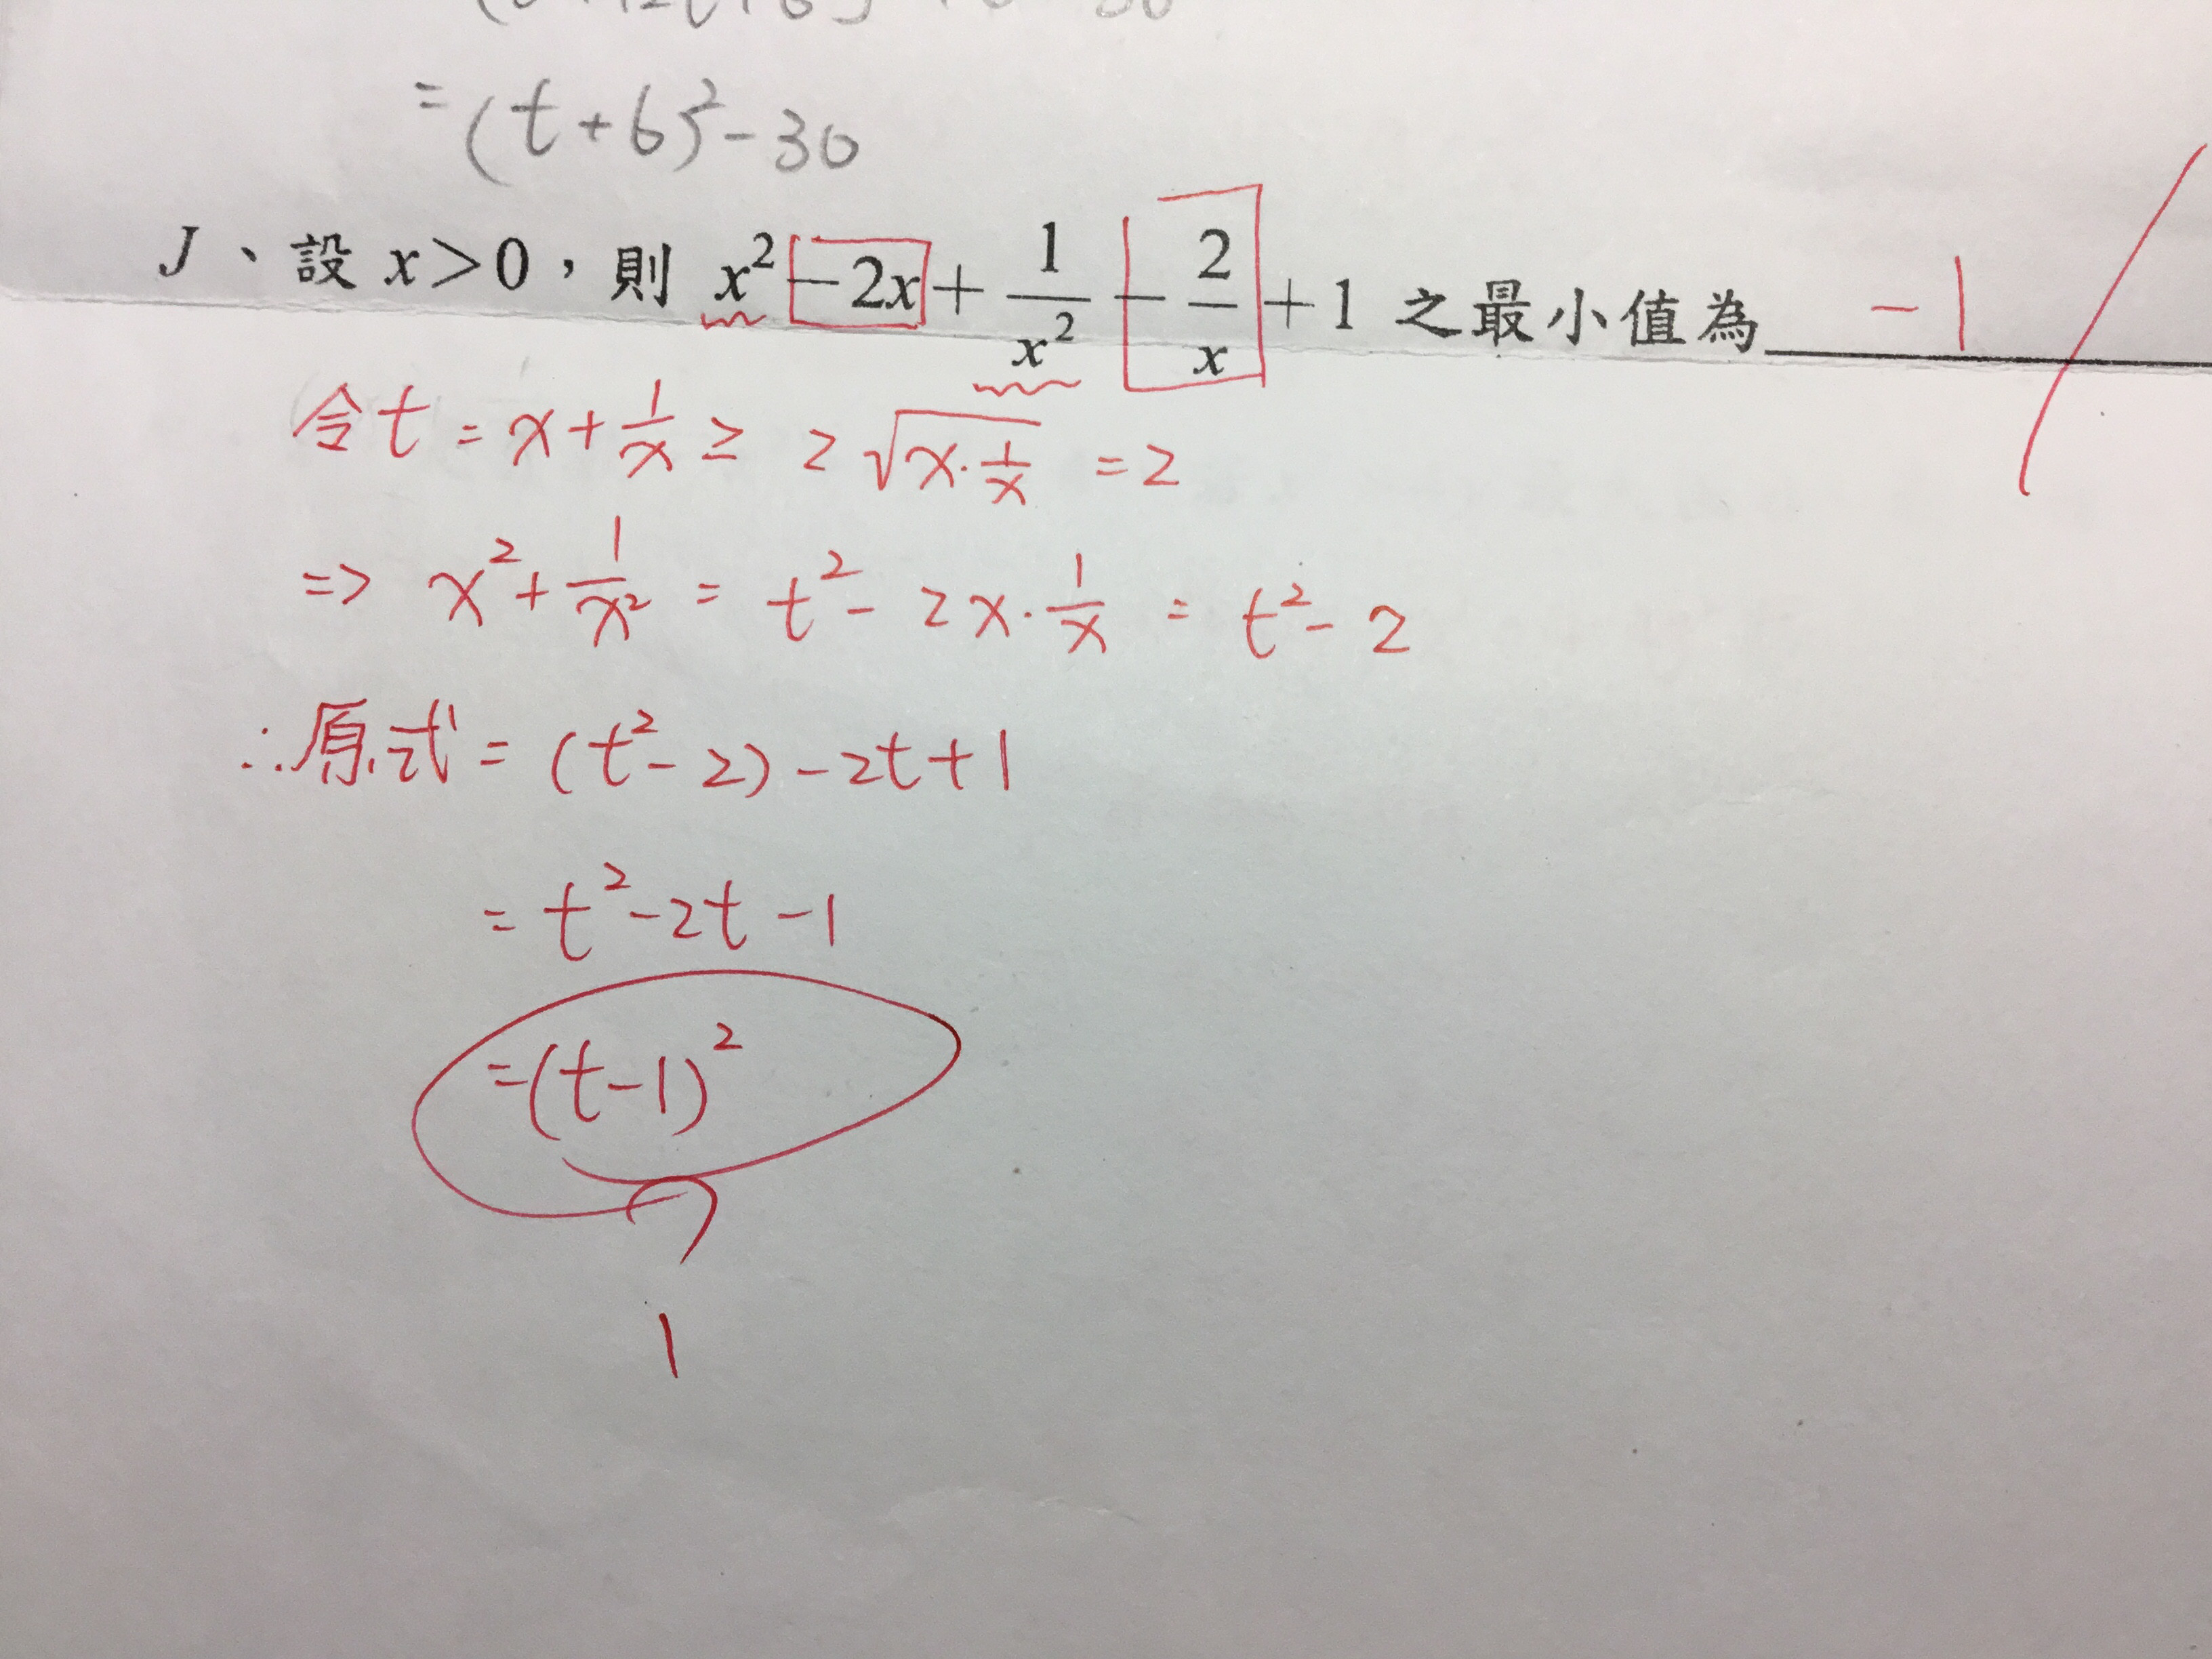 = (t+6)² - 30
J、設 x>0，則 x² - 2x + 1/x² - 2/x + 1 之最小值為 -1
令 t = x + 1/x ≥ 2√(x·1/x) = 2
=> x² + 1/x² = t² - 2x·1/x = t² - 2
∴原式 = (t² - 2) - 2t + 1
= t² - 2t - 1
= (t-1)²
1